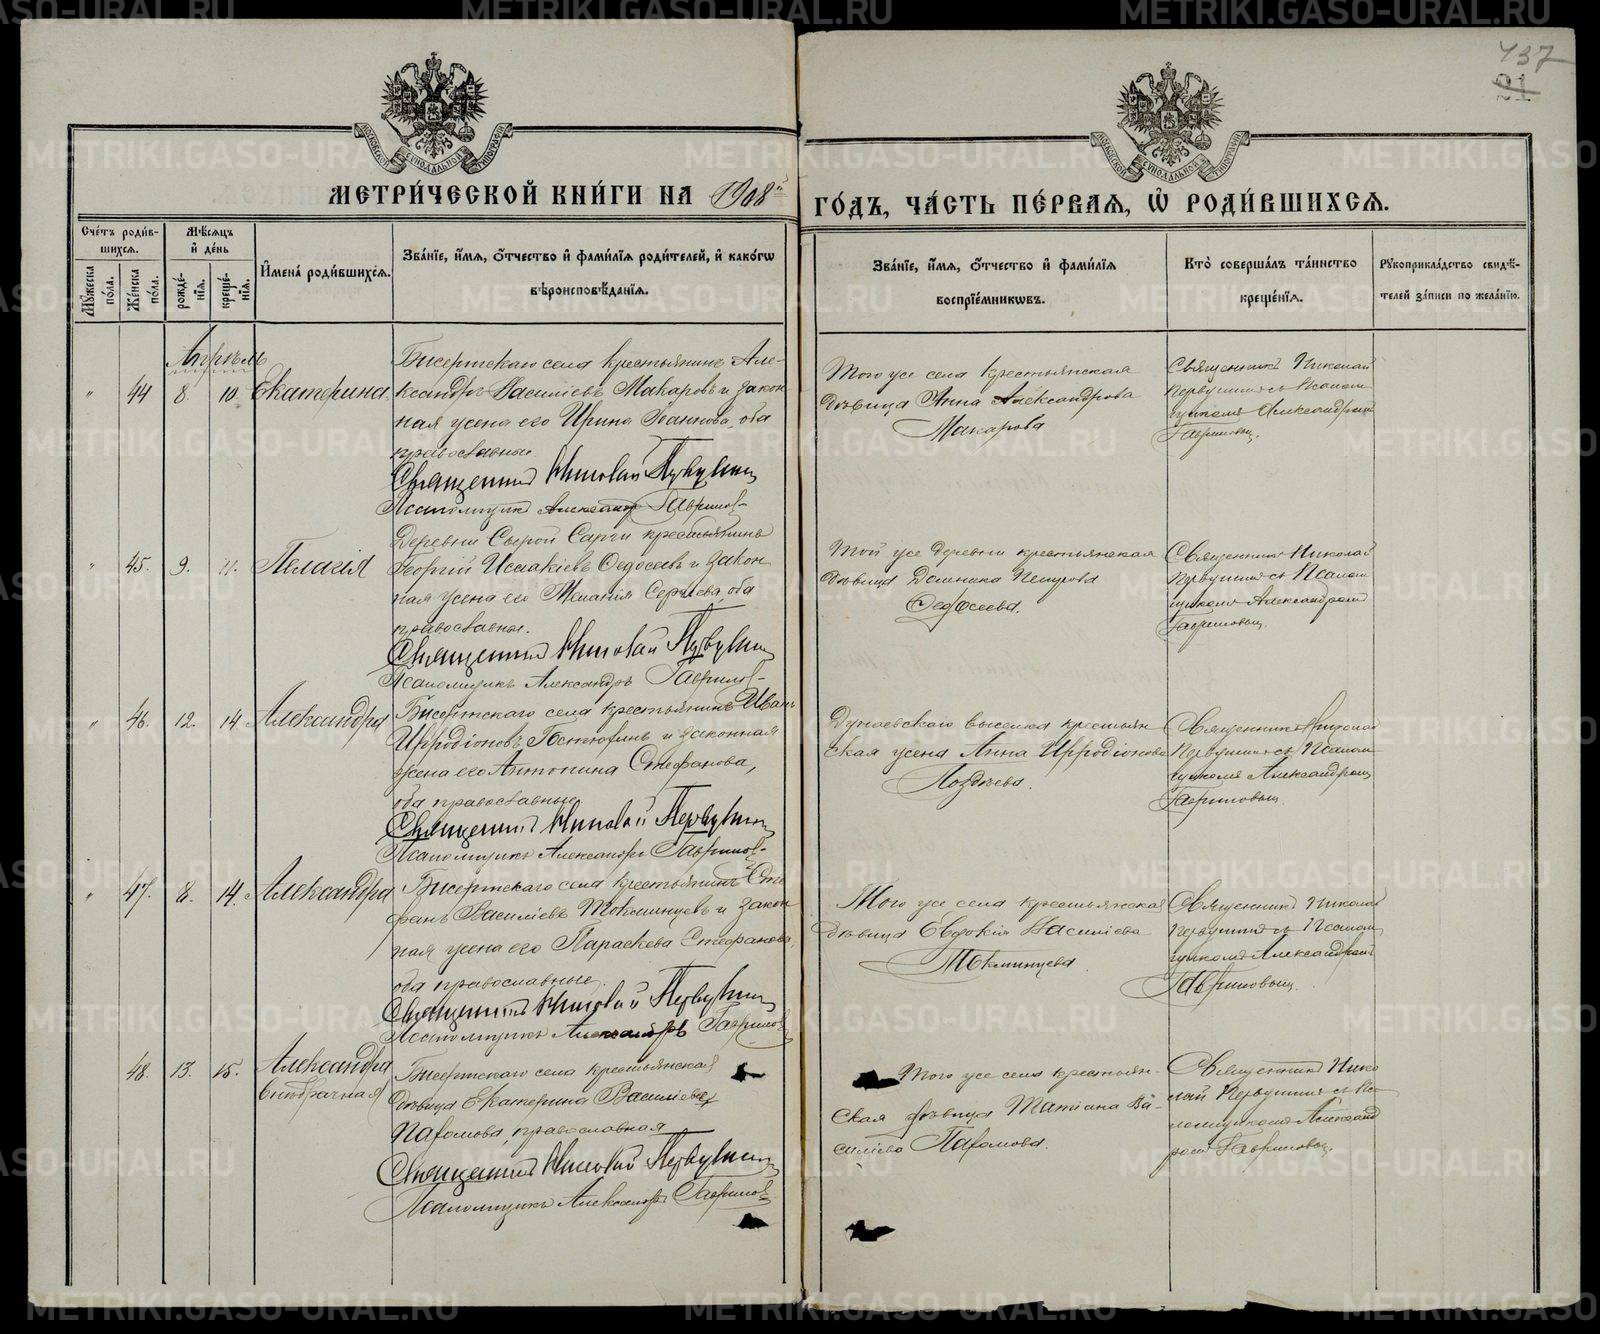 437
21
МОСКОВСКОЙ СѴНОДАЛЬНОЙ ТИПОГРАФІИ
МОСКОВСКОЙ СѴНОДАЛЬНОЙ ТИПОГРАФІИ
МЕТРИ́ЧЕСКОЙ КНИ́ГИ НА 1908й
ГО́ДЪ, ЧА́СТЬ ПЕ́РВАЯ, Ѽ РОДИ́ВШИХСЯ.
Сче́тъ роди́вшихся.
Му́жеска по́ла.
Же́нска по́ла.
Мѣ́сяцъ и҆ де́нь
рожде́нїя.
креще́нїя.
И҆мена̀ роди́вшихся.
Зва́нїе, и҆́мя, ѻ҆́тчество и҆ фами́лїя роди́телей, и҆ како́гѡ
вѣроисповѣ́данїя.
Зва́нїе, и҆́мя, ѻ҆́тчество и҆ фами́лїя
воспрїе́мникѡвъ.
Кто̀ соверша́лъ та́инство
креще́нїя.
Рꙋкоприкла́дство свидѣ́-
телей за́писи по жела́нїю.
Апрѣль
" 44 8. 10. Екатерина.
Бисертскаго села крестьянинъ Але-
ксандръ Васильевъ Макаровъ и закон
ная жена его Ирина Іоаннова, оба
православные.
Священникъ Николай Первушинъ
Псаломщикъ Александръ Гавриловъ
Того же села крестьянская
дѣвица Анна Александрова
Макарова
Священникъ Николай
Первушинъ съ Псалом
щикомъ Александромъ
Гавриловым.
" 45. 9. 11. Пелагія
Деревни Сырой Сарги крестьянинъ
Георгій Исаакіевъ Федосеевъ и закон
ная жена его Меланія Сергіева, оба
православные.
Священникъ Николай Первушинъ
Псаломщикъ Александръ Гавриловъ
Той же деревни крестьянская
дѣвица Домника Петрова
Федосеева.
Священникъ Николай
Первушинъ съ Псалом
щикомъ Александромъ
Гавриловым.
" 46. 12. 14. Александра
Бисертскаго села крестьянинъ Иванъ
Иродіоновъ и законная
жена его Антонина Стефанова,
оба православные
Священникъ Николай Первушинъ
Псаломщикъ Александръ Гавриловъ
Дунаевскаго выселка крестьян
ская жена Анна Иродіонова
Поздѣева.
Священникъ Николай
Первушинъ съ Псалом
щикомъ Александром
Гавриловым.
" 47. 8. 14. Александра
Бисертскаго села крестьянинъ Сте
фанъ Васильевъ Токминцевъ и закон
ная жена его Параскева Стефанова,
оба православные.
Священникъ Николай Первушинъ
Псаломщикъ Александръ Гавриловъ
Того же села крестьянская
дѣвица Евдокія Васильева
Токминцева.
Священникъ Николай
Первушинъ съ Псалом
щикомъ Александромъ
Гавриловым.
48. 13. 15. Александра
внѣбрачная
Бисертскаго села крестьянская
дѣвица Екатерина Васильева
Пахомова, православная
Священникъ Николай Первушинъ
Псаломщикъ Александръ Гавриловъ
Того же села крестьян-
ская дѣвица Татіана Ва-
сильева Пахомова.
Священникъ Нико
лай Первушинъ съ Пса
ломщикомъ Александ
ромъ Гавриловым.
METRIKI.GASO-URAL.RU